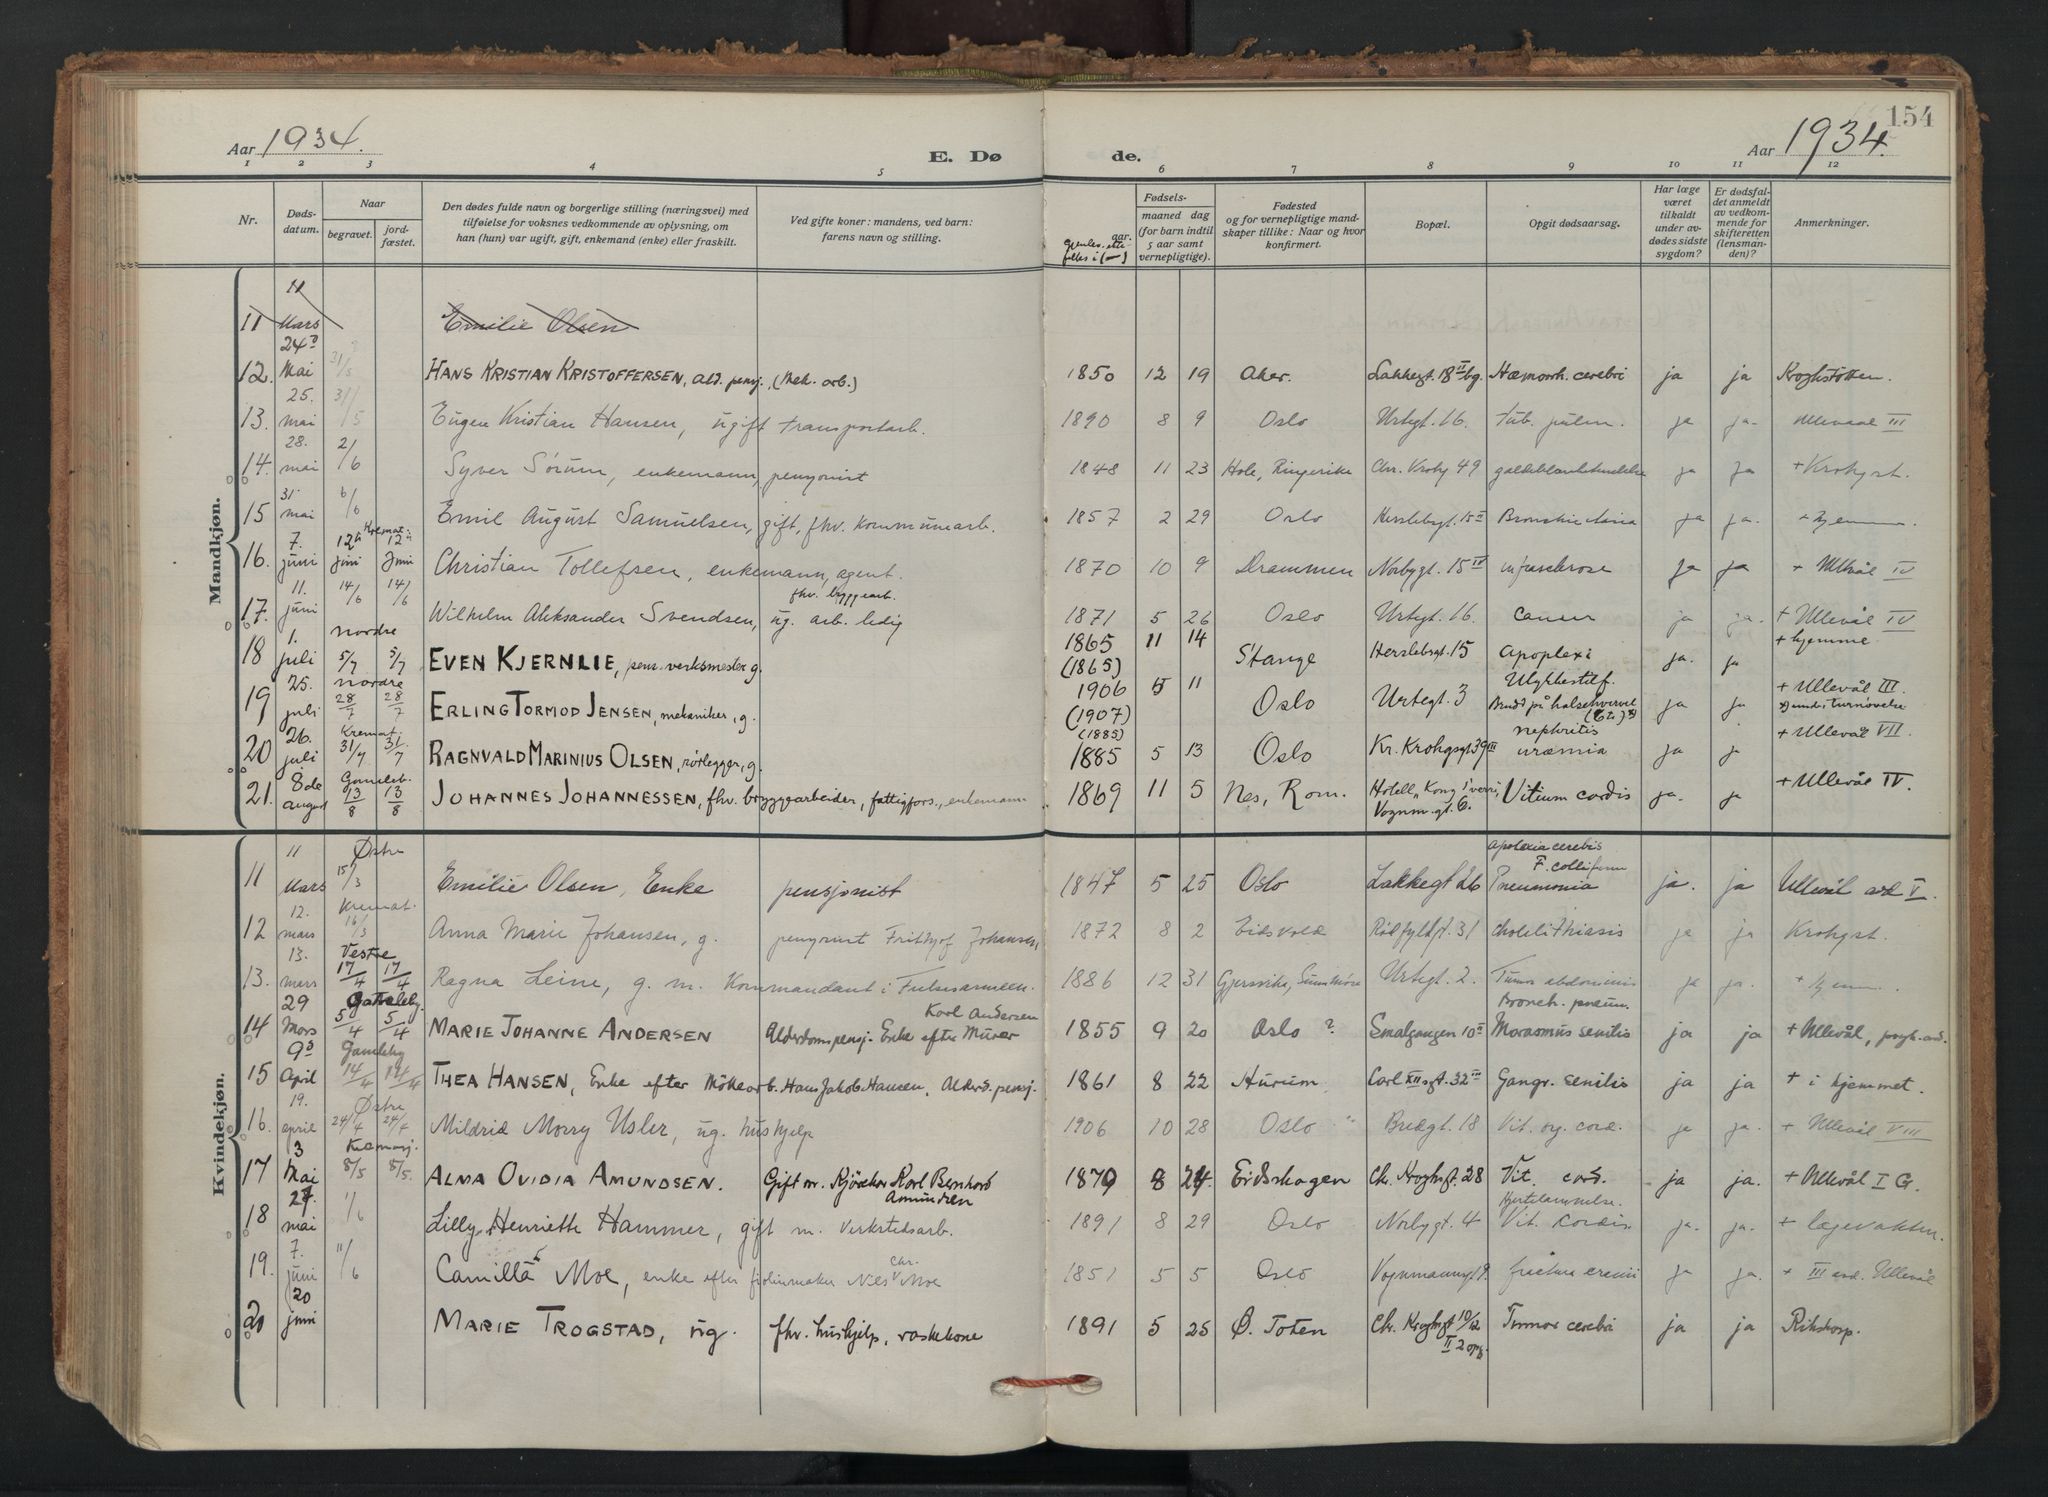 154
Aar 1934.
E. Dø
de.
Aar 1934.
1 2 3 4 5 6 7 8 9 10 11 12
Nr.
Døds-
datum.
Naar
begravet.
jord-
fæstet.
Den dødes fulde navn og borgerlige stilling (næringsvei) med
tilføielse for voksnes vedkommende av oplysning, om
han (hun) var ugift, gift, enkemand (enke) eller fraskilt.
Ved gifte koner: mandens, ved barn:
farens navn og stilling.
Fødsels-
aar. maaned dag
(for barn indtil
5 aar samt
vernepligtige).
Fødested
og for vernepligtige mand-
skaper tillike: Naar og hvor
konfirmert.
Bopæl.
Opgit dødsaarsag.
Har læge
været
tilkaldt
under av-
dødes sidste
sygdom?
Er dødsfal-
det anmeldt
av vedkom-
mende for
skifteretten
(lensman-
den)?
Anmerkninger.
Mandkjøn.
11 11 Mars Emilie Olsen
12. 24 Mai 31/5 HANS KRISTIAN KRISTOFFERSEN, ald. pensj. (Mek. arb.) 1850 12 19 Aker. Lakkegt. 18 II bg. Hæmorrh. cerebri ja ja Kroghstøtten.
13. 25. mai 31/5 Eugen Kristian Hansen, ugift transportarb. 1890 8 9 Oslo Urtegt. 16. tub. pulm. ja ja. Ullevaal III
14. 28. mai 2/6 Syver Sørum, enkemann, pensjonist 1848 11 23 Hole, Ringerike Chr. Krohg 49 ja ja + Krohgst.
15 31 mai 6/6 Emil August Samuelsen, gift, fhv. kommunearb. 1857 2 29 Oslo Herslebsgt. 15 II ja ja. + hjemme.
16. 7. juni Kremat. 12te juni 12te juni Christian Tollefsen, enkemann, agent. 1870 10 9 Drammen Norbygt. 15 IV ja ja + Ullevål IV
17. 11. juni 14/6 14/6 Wilhelm Aleksander Svendsen, ug. arb. ledig fhv. byggearb. 1871 5 26 Oslo Urtegt. 16 cancer ja ja. + Ullevål IV
18 1. juli nordre 5/7 5/7 EVEN KJERNLIE, pens. verksmester g. 1865 (1865) 11 14 Stange Herslebsgt. 15 Apoplexi ja. ja + hjemme
19 25. juli nordre 28/7 28/7 ERLING TORMOD JENSEN, mekaniker, g. 1906 (1907) 5 11 Oslo Urtegt. 3 Ulykkestilf. Brudd på halsehvirvel ja ja + Ullevål III.
20 26. juli Kremat. 31/7 31/7 RAGNVALD MARINIUS OLSEN, rørlegger, g. (1885) 1885 5 13 Oslo Kr. Krohgsgt. 39 III nephritis uræmia ja j + Ullevål VII.
21. 8de august Gamleb. 13/8 13/8 JOHANNES JOHANNESSEN, fhv. bryggearbeider, fattigfors., enkemann 1869 11 5 Nes, Rom. Hotell "Kong Sverri, Vognm.gt. 6. Vitium cordis ja. ja + Ullevål IV.
Kvindekjøn.
11 11 Mars Østre 15/3 Emilie Olsen, Enke pensjonist 1847 5 25 Oslo Lakkegt 26 apoplexia cerebris F. colli fem Pneumonia ja. ja Ullevål avd V.
12 12. mars Kremat. 16/3 Anna Marie Johansen, g. pensjonist Frithjof Johansen, 1872 8 2 Eidsvold Rødfyldgt. 31 Cholelithiasis ja ja Krohgst.
13. 13. mars Vestre 17/4 17/4 Ragna Leine, g. m. Kommandant i Frelsesarmeen. 1886 12 31 Gjersvika, Sunnmøre Urtegt. 2. Tumor abdominis ja ja. + hjemme.
14 29 Mars Gamleby. 5/4 5/4 MARIE JOHANNE ANDERSEN Alderdomspensj. Enke efter Murer Karl Andersen 1855 9 20 Oslo ? Smalgangen 10 II Bronch. pneum. Marasmus senilis ja ja + Ullevål, psyk. avd.
15 9de April Gamleby 14/4 14/4 THEA HANSEN, Enke efter Møllearb. Hans Jakob Hansen, Alderd. pensj. 1861 8 22 Hurum Carl XII gt. 32 III Gangr. senilis ja ja + i hjemmet.
16. 19. april Østre 24/4 24/4 Mildrid Morry Usler, ug. hushjelp 1906 10 28 Oslo Bredgt. 18 Vit. org. cord. ja ja. + Ullevål VIII
17 3 Mai 8/5 8/5. ALMA OVIDIA AMUNDSEN. Gift m. Kjørekar Karl Bernhard Amundsen 1879 8 24. Eidskogen Ch. Kroghgt. 28 Vit. cord. ja ja. + Ullevål I G.
18 27. mai 1/6 Lilly Henriette Hammer, gift m. Verkstedsarb. 1891 8 29 Oslo Norbygt. 4 Hjertelammelse. Vit. cordis. ja. ja. + lægevakten.
19. 7. juni 11/6 Camilla Moe, enke efter fiolinmaker Nils Chr. Moe 1851 5 5 Oslo Vognmannsgt 9. fractura cranii ja ja. + III avd. Ullevål
20 20 juni MARIE TROGSTAD, ug. fhv. hushjelp, vaskekone 1891 5 25 Ø. Toten Ch. Kroghgt 10/12 II 2 opg. Tumor cerebri ja ja Rikshosp.